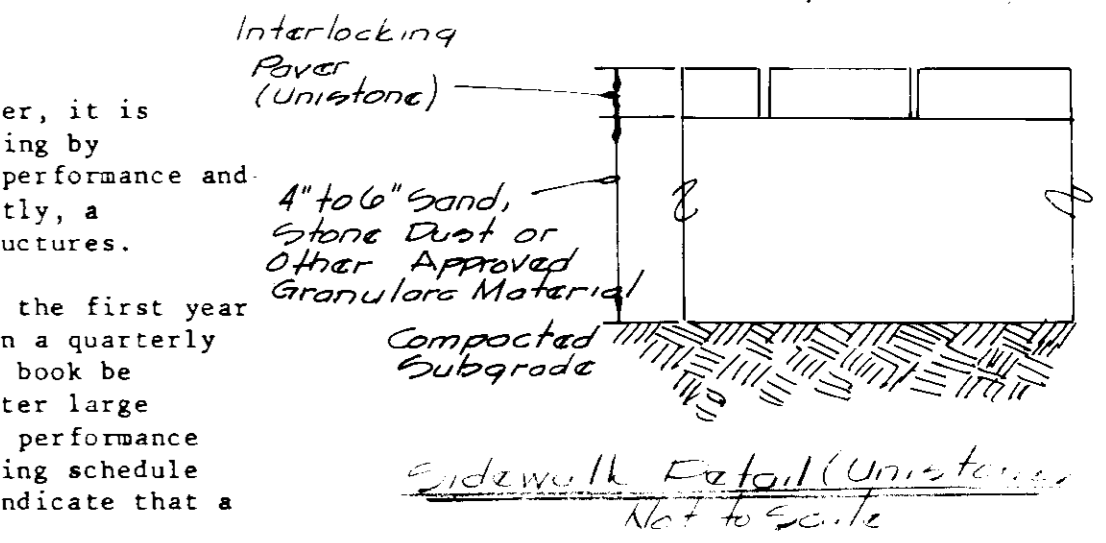 er, it is
ing by
performance and
tly, a
uctures.
the first year
n a quarterly
book be
ter large
performance
ing schedule
ndicate that a
Interlocking
Paver
(Unistone)
4" to 6" Sand,
Stone Dust or
Other Approved
Granularc Material
Compacted
Subgrade
Sidewalk Detail (Unistone)
Not to Scale